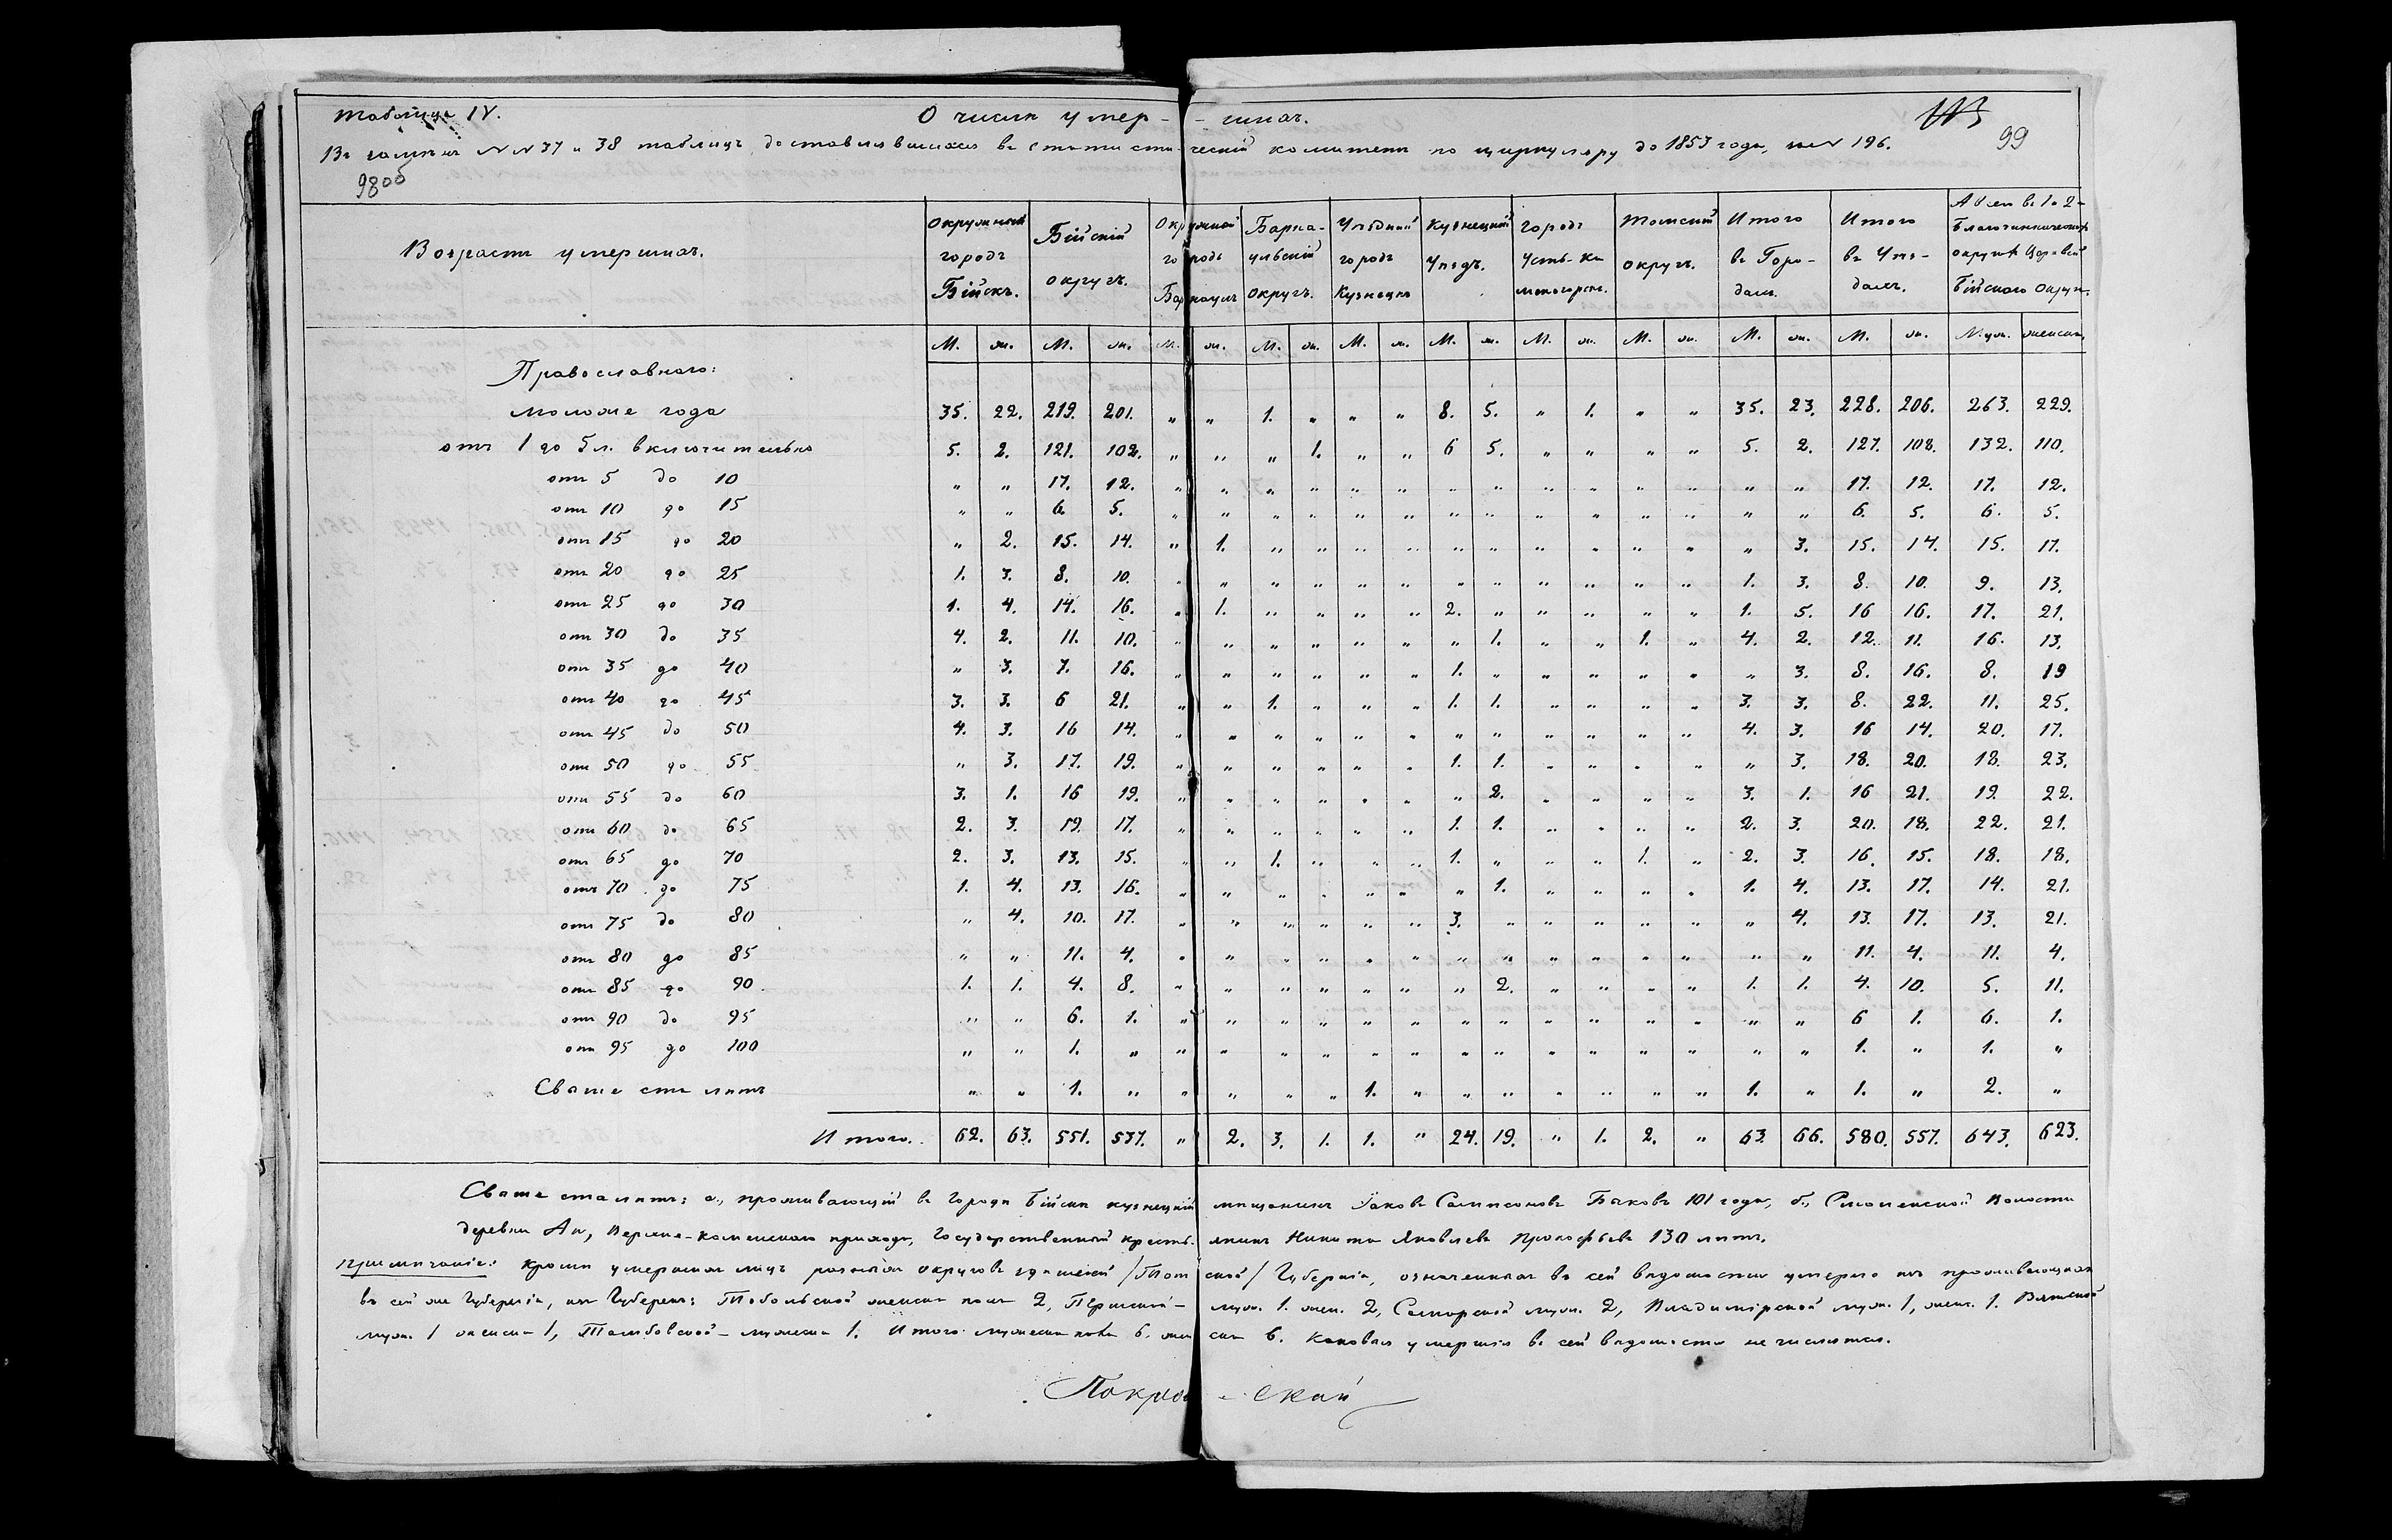 Таблица IV. О числѣ умер- -шихъ.
Въ замѣнъ №№ 37 и 38 таблицъ, доставлявшихся въ статистическій комитетъ по циркуляру до 1853 года, за № 196. 99
98об
Возрастъ умершихъ. Окружный городъ Бійскъ. Бійскій округъ. Окружной городъ Барнаулъ Барнаульскій округъ. Уѣздный городъ Кузнецкъ Кузнецкій Уѣздъ. Городъ Усть-Каменогорскъ. Томскій округъ. Итого въ Городахъ. Итого въ Уѣздахъ. А всего въ 1 и 2 Благочинническихъ округахъ Церквей Бійскаго Округа.
М. ж. М. ж. М. ж. М. ж. М. ж. М. ж. М. ж. М. ж. М. ж. М. ж. Муж. женск.
Православнаго:
моложе года 35. 22. 219. 201. „ „ 1. „ „ „ 8. 5. „ 1. „ „ 35. 23. 228. 206. 263. 229.
отъ 1 до 5 л. включительно 5. 2. 121. 102. „ „ „ 1. „ „ 6 5. „ „ „ „ 5. 2. 127. 108. 132. 110.
отъ 5 до 10 „ „ 17. 12. „ „ „ „ „ „ „ „ „ „ „ „ „ „ 17. 12. 17. 12.
отъ 10 до 15 „ „ 6. 5. „ „ „ „ „ „ „ „ „ „ „ „ „ „ 6. 5. 6. 5.
отъ 15 до 20 „ 2. 15. 14. „ 1. „ „ „ „ „ „ „ „ „ „ „ 3. 15. 14. 15. 17.
отъ 20 до 25 1. 3. 8. 10. „ „ „ „ „ „ „ „ „ „ „ „ 1. 3. 8. 10. 9. 13.
отъ 25 до 30 1. 4. 14. 16. „ 1. „ „ „ „ 2. „ „ „ „ „ 1. 5. 16 16. 17. 21.
отъ 30 до 35 4. 2. 11. 10. „ „ „ „ „ „ „ 1. „ „ 1. „ 4. 2. 12. 11. 16. 13.
отъ 35 до 40 „ 3. 7. 16. „ „ „ „ „ „ 1. „ „ „ „ „ „ 3. 8. 16. 8. 19
отъ 40 до 45 3. 3. 6 21. „ „ 1. „ „ „ 1. 1. „ „ „ „ 3. 3. 8. 22. 11. 25.
отъ 45 до 50 4. 3. 16 14. „ „ „ „ „ „ „ „ „ „ „ „ 4. 3. 16 14. 20. 17.
отъ 50 до 55 „ 3. 17. 19. „ „ „ „ „ „ 1. 1. „ „ „ „ „ 3. 18. 20. 18. 23.
отъ 55 до 60 3. 1. 16 19. „ „ „ „ „ „ „ 2. „ „ „ „ 3. 1. 16 21. 19. 22.
отъ 60 до 65 2. 3. 19. 17. „ „ „ „ „ „ 1. 1. „ „ „ „ 2. 3. 20. 18. 22. 21.
отъ 65 до 70 2. 3. 13. 15. „ „ 1. „ „ „ 1. „ „ „ 1. „ 2. 3. 16. 15. 18. 18.
отъ 70 до 75 1. 4. 13. 16. „ „ „ „ „ „ „ 1. „ „ „ „ 1. 4. 13. 17. 14. 21.
отъ 75 до 80 „ 4. 10. 17. „ „ „ „ „ „ 3. „ „ „ „ „ „ 4. 13. 17. 13. 21.
отъ 80 до 85 „ „ 11. 4. „ „ „ „ „ „ „ „ „ „ „ „ „ „ 11. 4. 11. 4.
отъ 85 до 90 1. 1. 4. 8. „ „ „ „ „ „ „ 2. „ „ „ „ 1. 1. 4. 10. 5. 11.
отъ 90 до 95 „ „ 6. 1. „ „ „ „ „ „ „ „ „ „ „ „ „ „ 6 1. 6. 1.
отъ 95 до 100 „ „ 1. „ „ „ „ „ „ „ „ „ „ „ „ „ „ „ 1. „ 1. „
Свыше ста лѣтъ „ „ 1. „ „ „ „ „ 1. „ „ „ „ „ „ „ 1. „ 1. „ 2. „
Итого. 62. 63. 551. 537. „ 2. 3. 1. 1. „ 24. 19. „ 1. 2. „ 63. 66. 580. 557. 643. 623.
Свыше ста лѣтъ: а., проживающій въ городѣ Бійскѣ кузнецкій мѣщанинъ Іаковъ Сампсоновъ Быковъ 101 года, б., Смоленской Волости
деревни Ан, Верхне-каменскаго прихода, Государственный крестьянинъ Никита Яковлевъ Прокофьевъ 130 лѣтъ.
Примѣчаніе: кромѣ умершихъ лицъ разныхъ округовъ здѣшней /Томской/ Губерніи, означенныхъ въ сей вѣдомости умерло изъ проживающихъ
въ сей же Губерніи, изъ Губерній: Тобольской женска пола 2, Пермской- муж. 1. жен. 2, Самарской муж. 2, Владимірской муж. 1, женс. 1. Вятской
муж. 1 женска 1, Тамбовской- мужеска 1. Итого мужеска пола 6. женска 6. Каковыя умершія въ сей вѣдомости не числятся.
Покровской